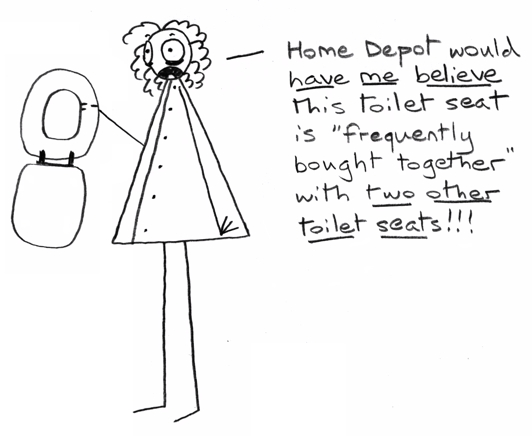 Home Depot would
have me believe
this toilet seat
is "frequently
bought together"
with two other
toilet seats!!!